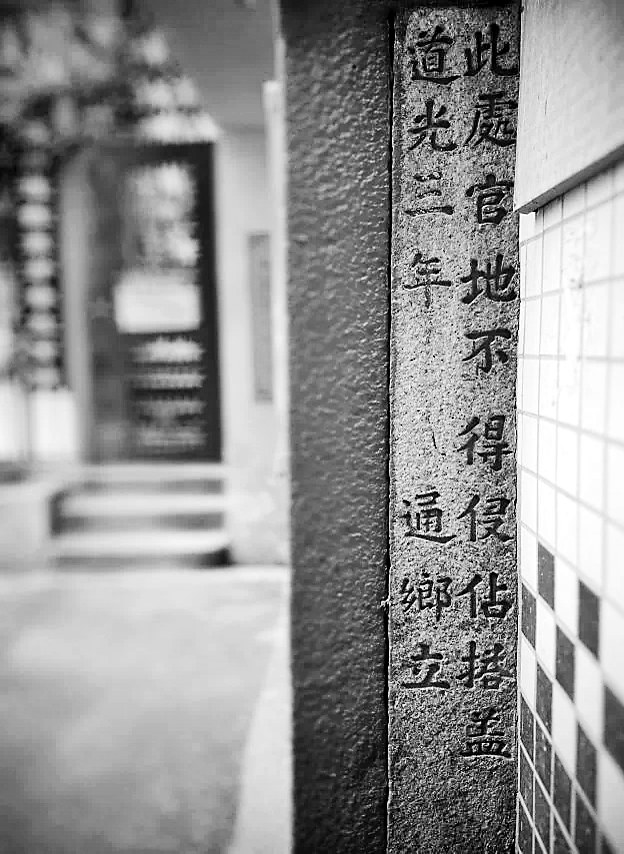 此處官地不得侵佔搭盖
道光三年 通鄉立